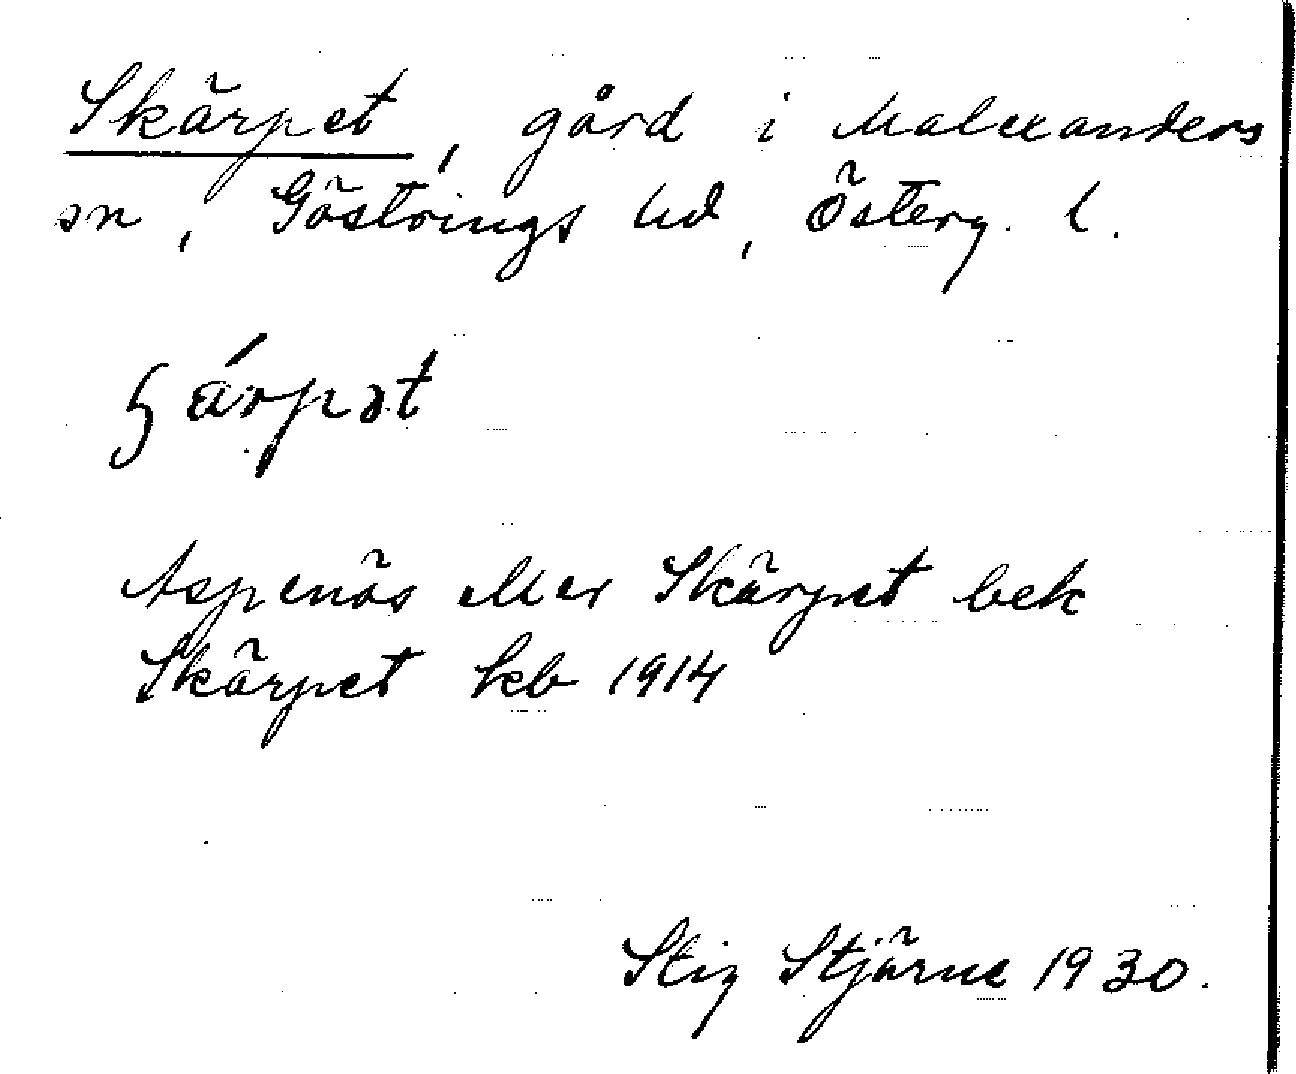 Skärpet, gård i Malexanders
sn, Göstrings hd, Österg. l.
ɧárpət
Aspenäs eller Skärpet bek
Skärpet kb 1914
Stig Stjärne 1930.